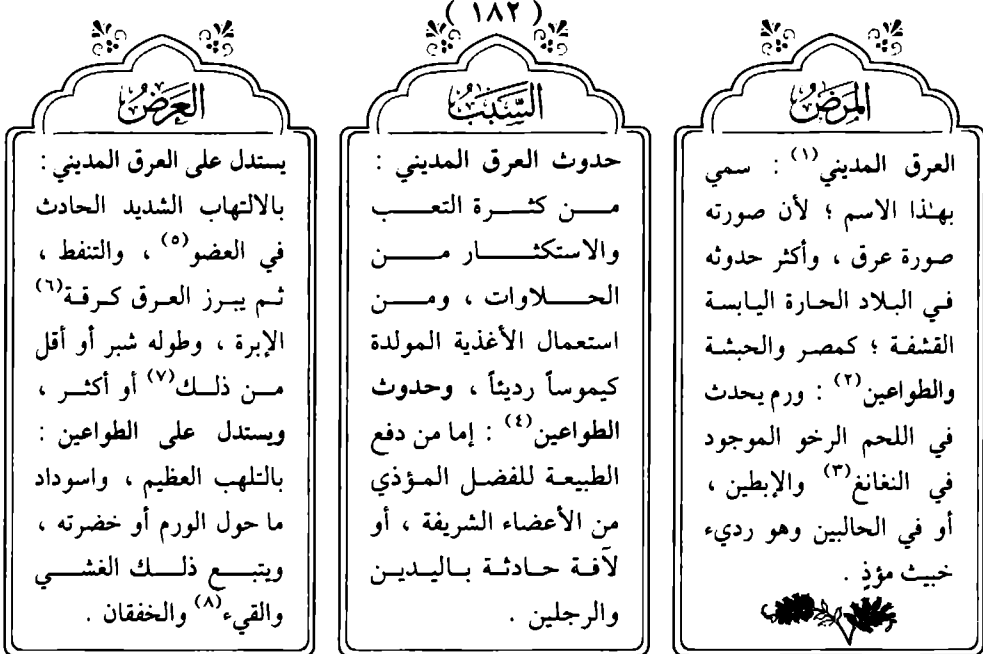 ( ١٨٢ )
المَرَضُ
العرق المديني(١) : سمي
بهـٰذا الاسم ؛ لأن صورته
صورة عرق ، وأكثر حدوثه
في البلاد الحارة اليابسة
القشفة ؛ كمصر والحبشة
والطواعين(٢) : ورم يحدث
في اللحم الرخو الموجود
في النغانغ(٣) والإبطين ،
أو في الحالبين وهو رديء
خبيث مؤذٍ .
السَّبَبُ
حدوث العرق المديني :
من كثرة التعب
والاستكثار من
الحلاوات ، ومن
استعمال الأغذية المولدة
كيموساً رديئاً ، وحدوث
الطواعين(٤) : إما من دفع
الطبيعة للفضل المؤذي
من الأعضاء الشريفة ، أو
لآفة حادثة باليدين
والرجلين .
العَرَضُ
يستدل على العرق المديني :
بالالتهاب الشديد الحادث
في العضو(٥) ، والتنفط ،
ثم يبرز العرق كرقة(٦)
الإبرة ، وطوله شبر أو أقل
من ذلك(٧) أو أكثر ،
ويستدل على الطواعين :
بالتلهب العظيم ، واسوداد
ما حول الورم أو خضرته ،
ويتبع ذلك الغشي
والقيء(٨) والخفقان .